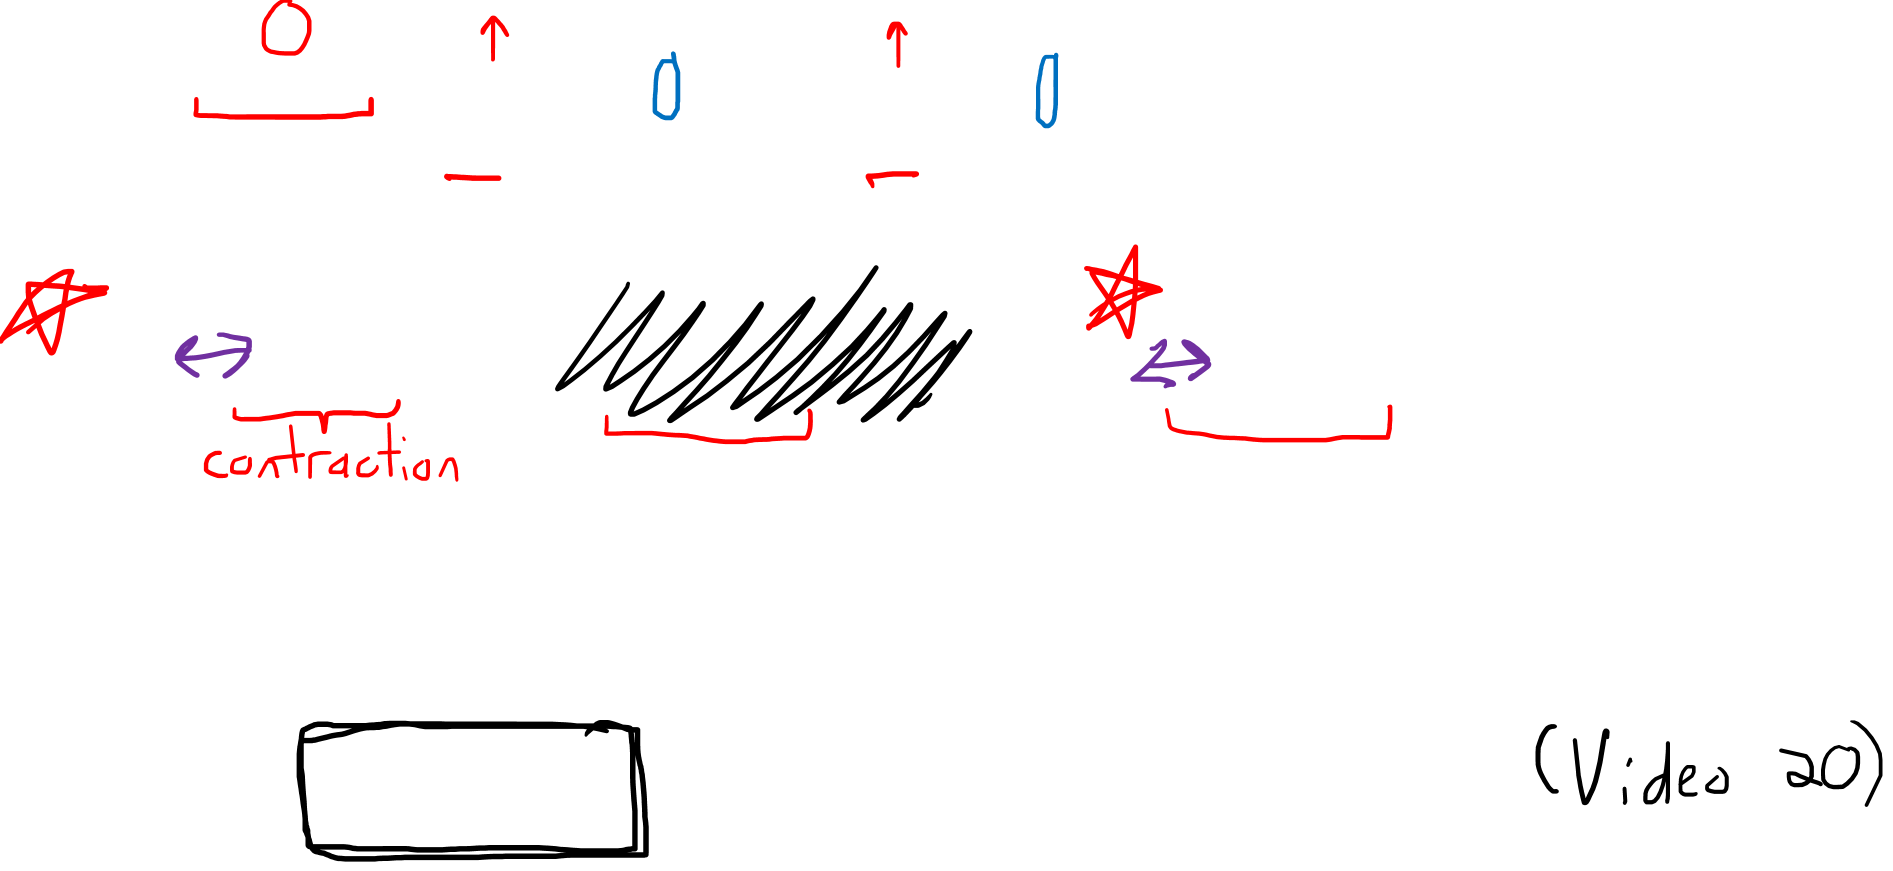 contraction
(Video 20)